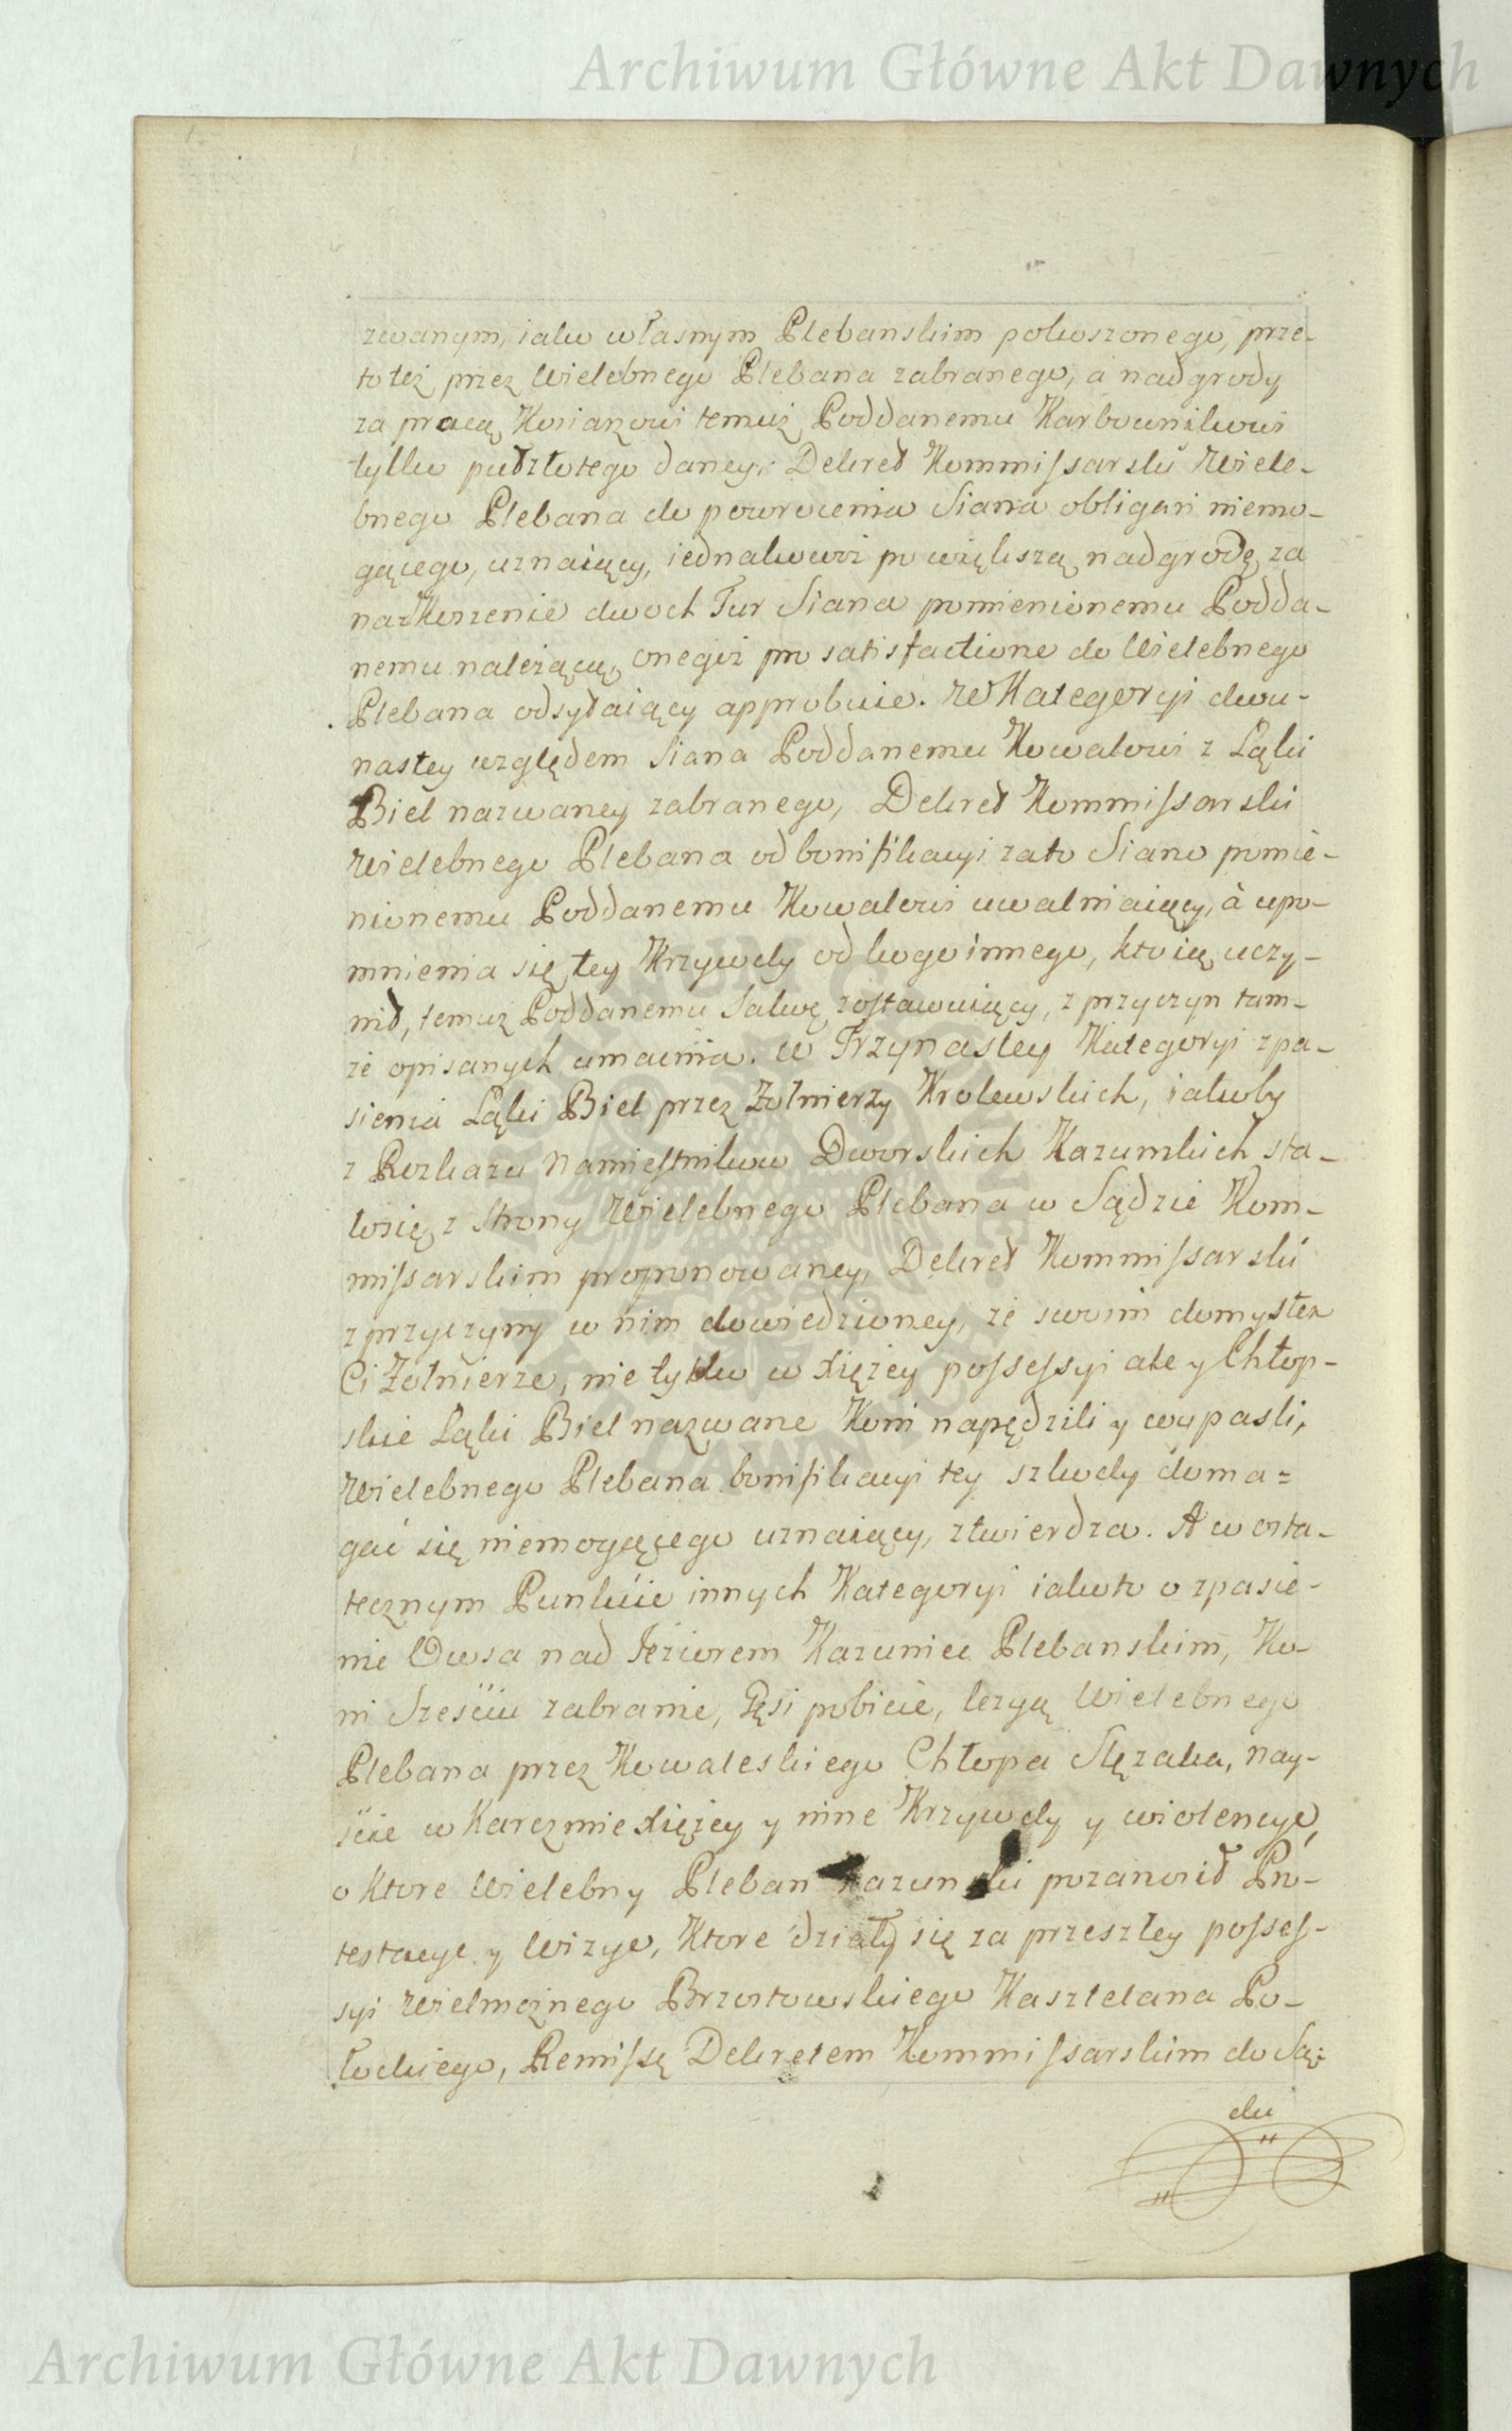 Archiwum Główne Akt Dawnych
zwanym, iako własnym Plebanskim pokoszonego, prze-
to też przez Wielebnego Plebana zabranego, á nadgrody
za pracą Kosiarzowi temuż Poddanemu Karbownikowi
tylko pułzłotego daney, Dekret Kommissarski Wiele-
bnego Plebana do powrocenia Siana obligari niemo-
gącego, uznaiący, iednakowoż po większą nadgrodę za
nazkoszenie dwoch Fur Siana pomienionemu Podda-
nemu należącą, onegoż pro satisfactione do Wielebnego
Plebana odsyłaiący approbuie. W Kategoryi dwu-
nastey względem Siana Poddanemu Kowalowi z Łąki
Biel nazwaney zabranego, Dekret Kommissarski
Wielebnego Plebana od bonifikacyi zato Siano pomie-
nionemu Poddanemu Kowalowi uwalniaiący, à upo-
mnienia się tey Krzywdy od kogo innego, kto ią uczy-
nił, temuż Poddanemu Salwę zostawuiący, z przyczyn tam-
że opisanych umacnia. w Trzynastey Kategoryi zpa-
sienia Łąki Biel przez Żołnierzy Krolewskich, iakoby
z Rozkazu Namiestnikow Dworskich Kazunskich sta-
wsię z Strony Wielebnego Plebana w Sądzie Kom-
missarskim proponowaney, Dekret Kommissarski
z przyczyny w nim dowiedzioney, że swoim domysłem
Ci Żołnierze, nie tylko w Xiężey possessyi ale y Chłop-
skie Łąki Biel nazwane Koni napędzili y wypasli,
Wielebnego Plebana bonifikacyi tey szkody doma=
gać się niemogącego uznaiący, ztwierdza. A w osta-
tecznym Punkcie innych Kategoryi iakoto o zpasie-
nie Owsa nad Jeziorem Kazuniec Plebanskim, Ko-
ni Sześciu zabranie, Gęsi pobicie, lezyą Wielebnego
Plebana przez Kowaleskiego Chłopa Slęzaka, nay-
ście w Karczmie Xiężey y inne Krzywdy y wiolencye,
o Ktore Wielebny Pleban Kazunski pozanosił Pro-
testacye y Wizye, Ktore działy się za przeszłey posses-
syi Wielmożnego Brzostowskiego Kasztelana Po-
łockiego, Remissę Dekretem Kommissarskim do Są=
du
Archiwum Główne Akt Dawnych